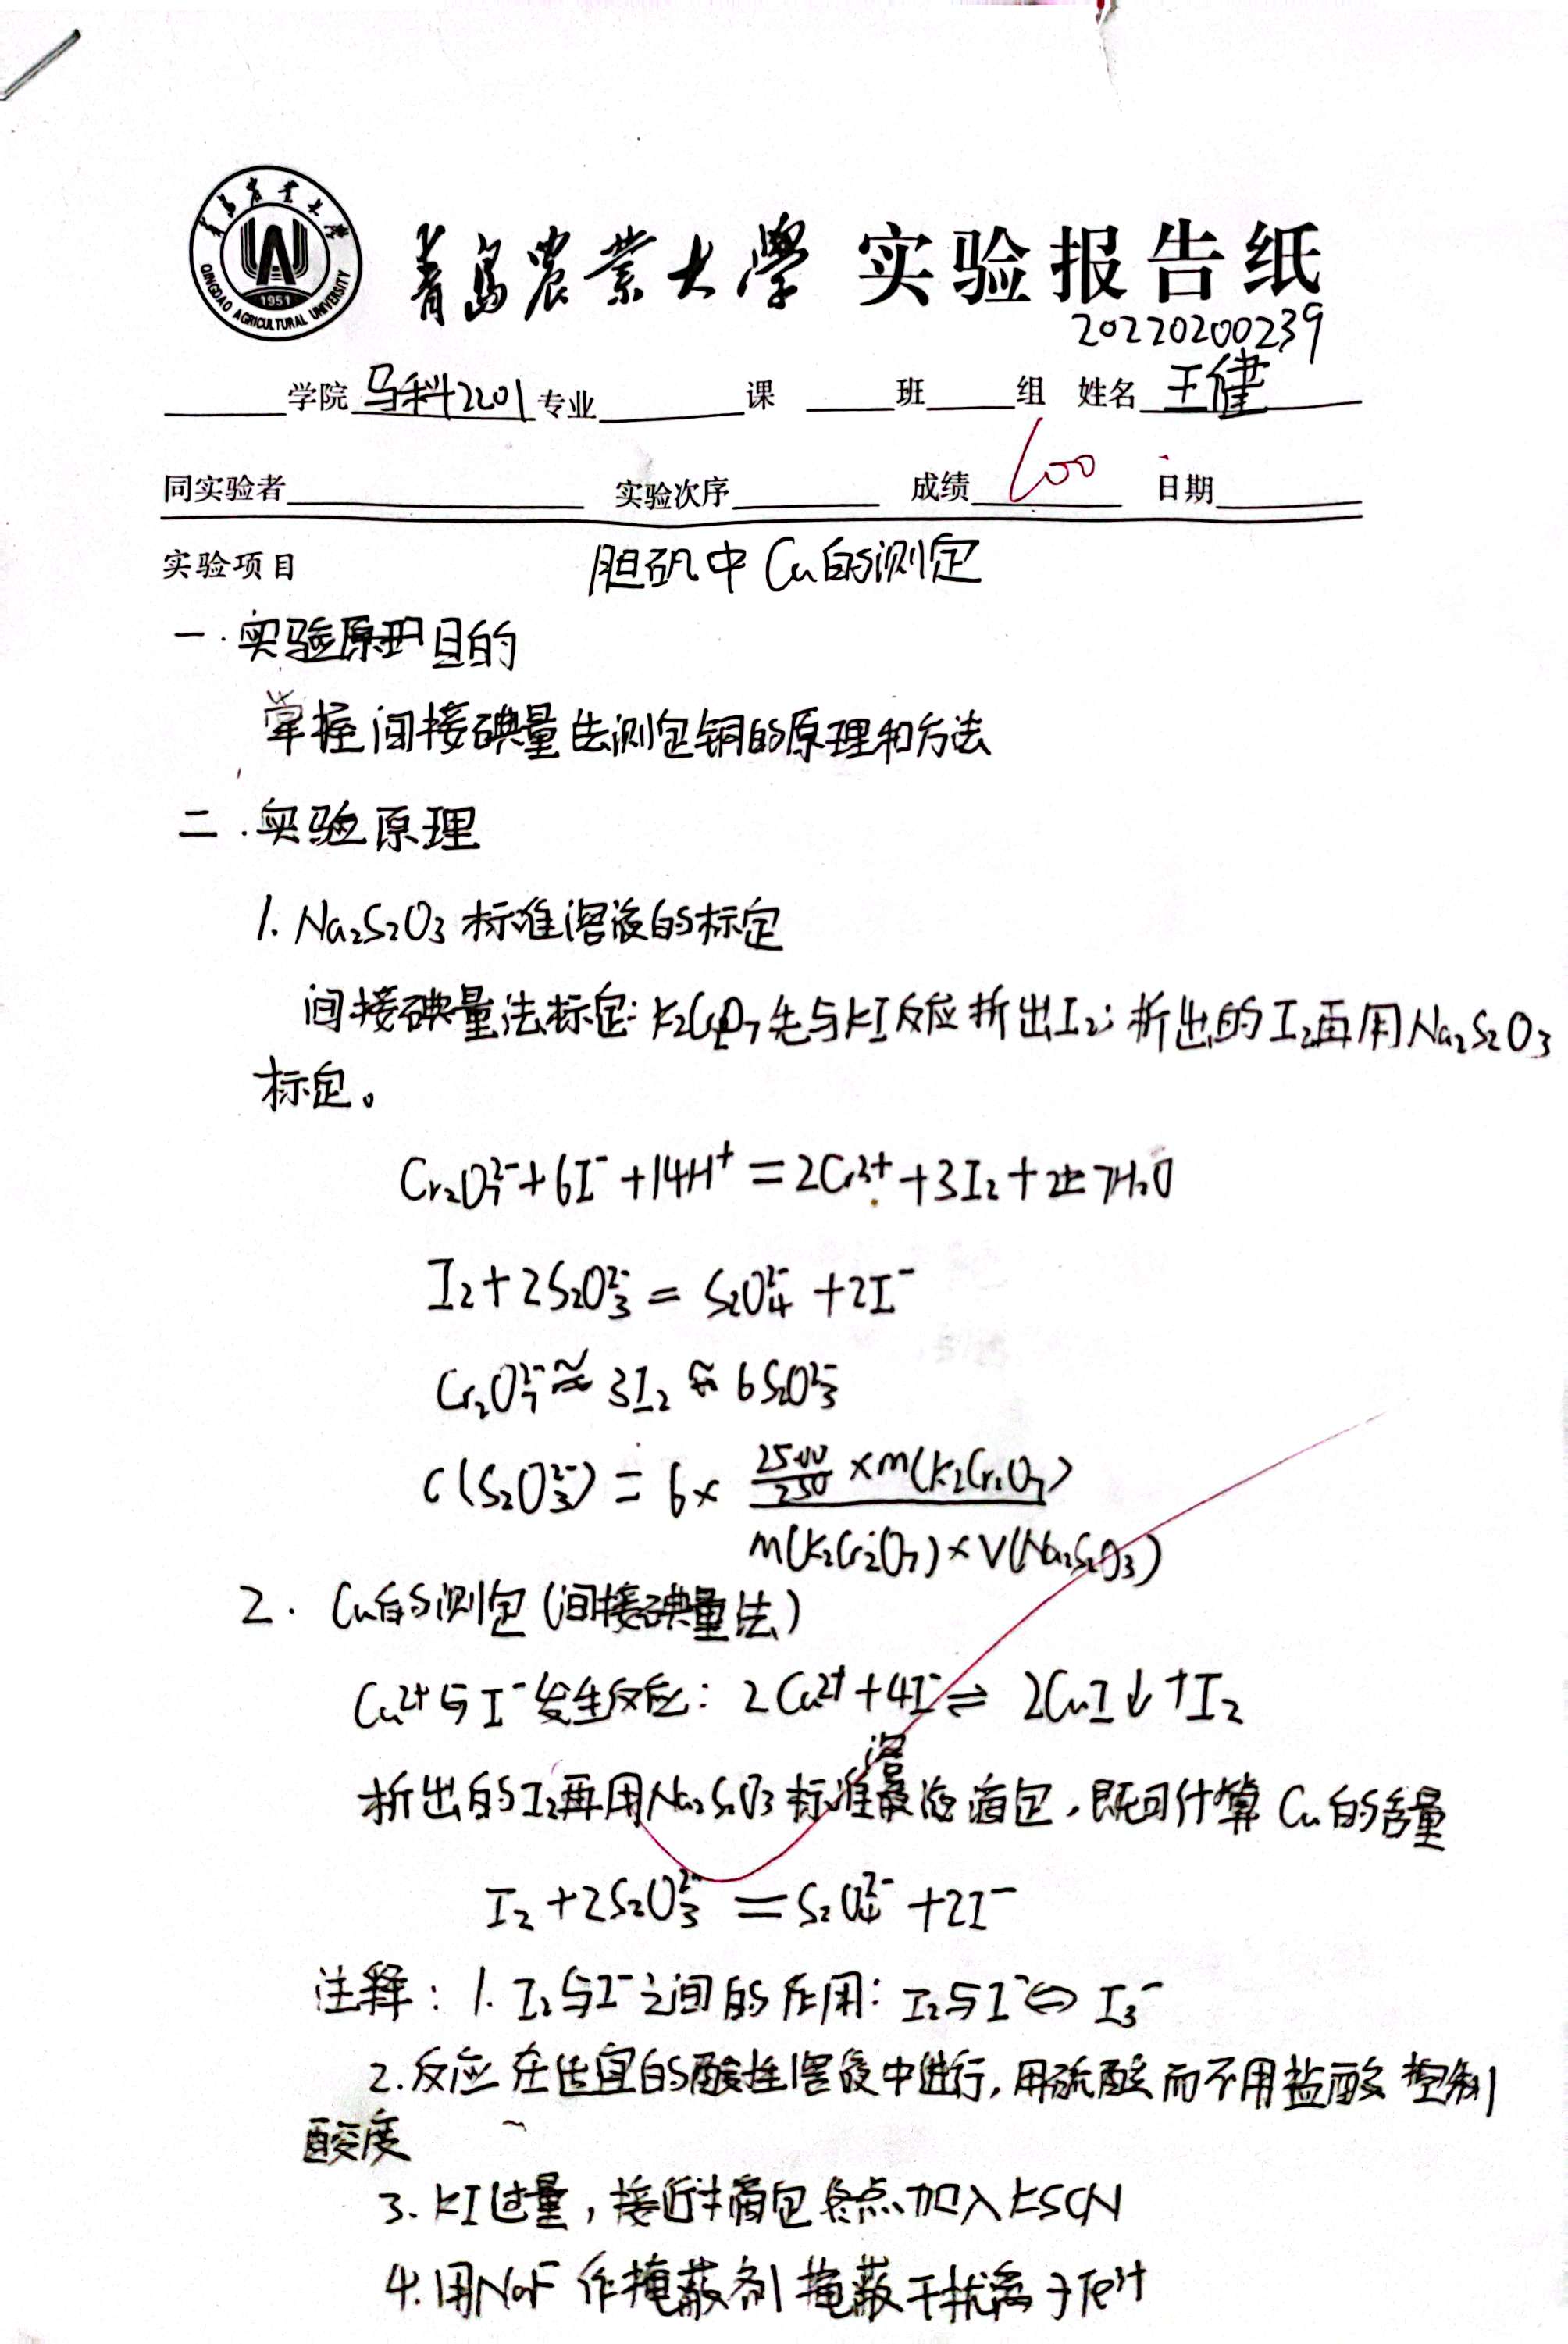 青岛农业大学
QINGDAO AGRICULTURAL UNIVERSITY
1951
青岛农业大学 实验报告纸
20220200239
学院 马科2201 专业 课 班 组 姓名 王健
同实验者 实验次序 成绩 100 日期
实验项目 胆矾中Cu的测定
一.实验原理目的
掌握间接碘量法测定铜的原理和方法
二.实验原理
1. Na₂S₂O₃标准溶液的标定
间接碘量法标定: K₂Cr₂O₇先与KI反应析出I₂; 析出的I₂再用Na₂S₂O₃
标定。
Cr₂O₇²⁻+6I⁻+14H⁺=2Cr³⁺+3I₂+7H₂O
I₂+2S₂O₃²⁻=S₂O₄²⁻+2I⁻
Cr₂O₇²⁻≈3I₂≈6S₂O₃²⁻
c(S₂O₃²⁻)=6×
25.00/250 ×m(K₂Cr₂O₇)
m(K₂Cr₂O₇)×V(Na₂S₂O₃)
2. Cu的测定(间接碘量法)
Cu²⁺与I⁻发生反应: 2Cu²⁺+4I⁻⇌2CuI↓+I₂
析出的I₂再用Na₂S₂O₃标准溶液滴定,既可计算Cu的含量
I₂+2S₂O₃²⁻=S₂O₄²⁻+2I⁻
注释: 1. I₂与I⁻之间的作用: I₂与I⁻⇔I₃⁻
2.反应在适宜的酸性溶液中进行,用硫酸而不用盐酸控制
酸度
3. KI过量,接近滴定终点加入KSCN
4.用NaF作掩蔽剂掩蔽干扰离子Fe³⁺